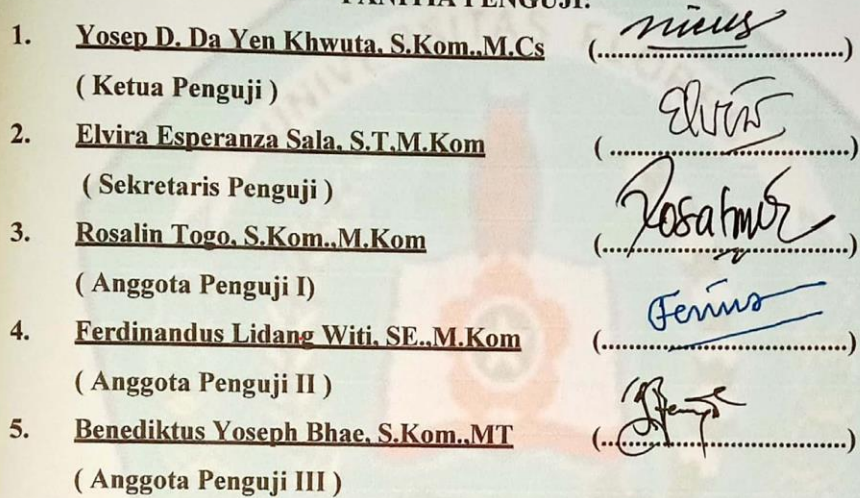 PANITIA PENGUJI:
1. Yosep D. Da Yen Khwuta, S.Kom.,M.Cs (..........................................)
( Ketua Penguji )
2. Elvira Esperanza Sala, S.T,M.Kom (..........................................)
( Sekretaris Penguji )
3. Rosalin Togo, S.Kom.,M.Kom (..........................................)
( Anggota Penguji I)
4. Ferdinandus Lidang Witi, SE.,M.Kom (..........................................)
( Anggota Penguji II )
5. Benediktus Yoseph Bhae, S.Kom.,MT (..........................................)
( Anggota Penguji III )